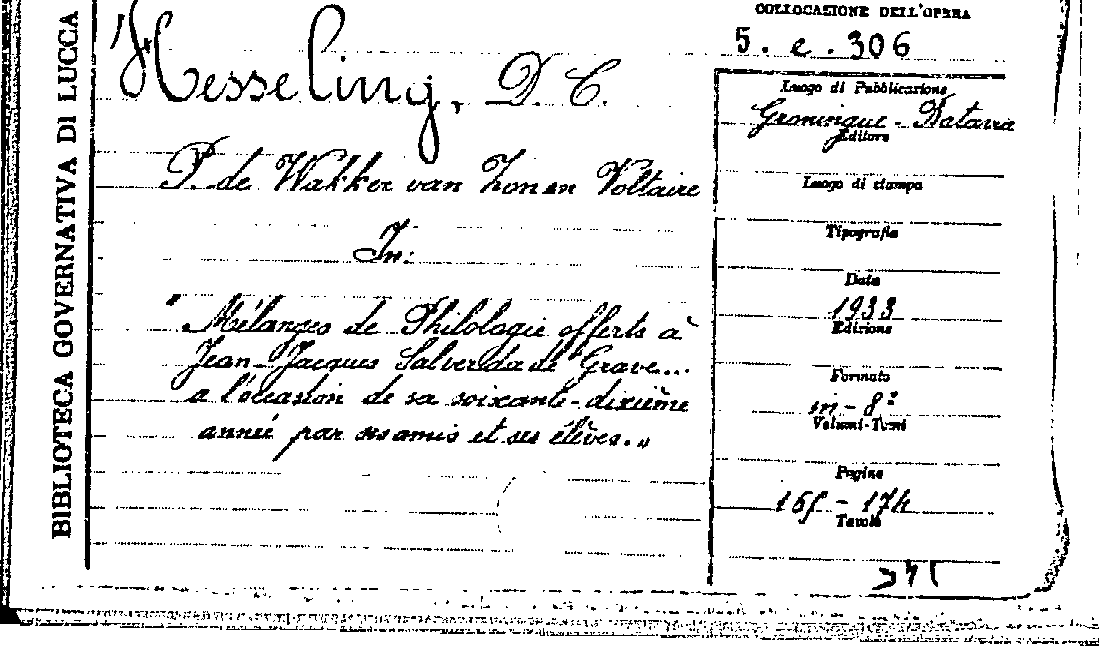 BIBLIOTECA GOVERNATIVA DI LUCCA
Hesseling, D. C.
P. de Wakker van Zonen Voltaire
In:
"Mélanges de Philologie offerts à
Jean-Jacques Salverda de Grave...
a l'occasion de sa soixante-dixième
année par ses amis et ses élèves."
COLLOCAZIONE DELL'OPERA
5. e. 306
Luogo di Pubblicazione
Groningue - Batavia
Editore
Luogo di stampa
Tipografia
Data
1933
Edizione
Formato
in-8º
Volumi-Tomi
Pagine
Tavole